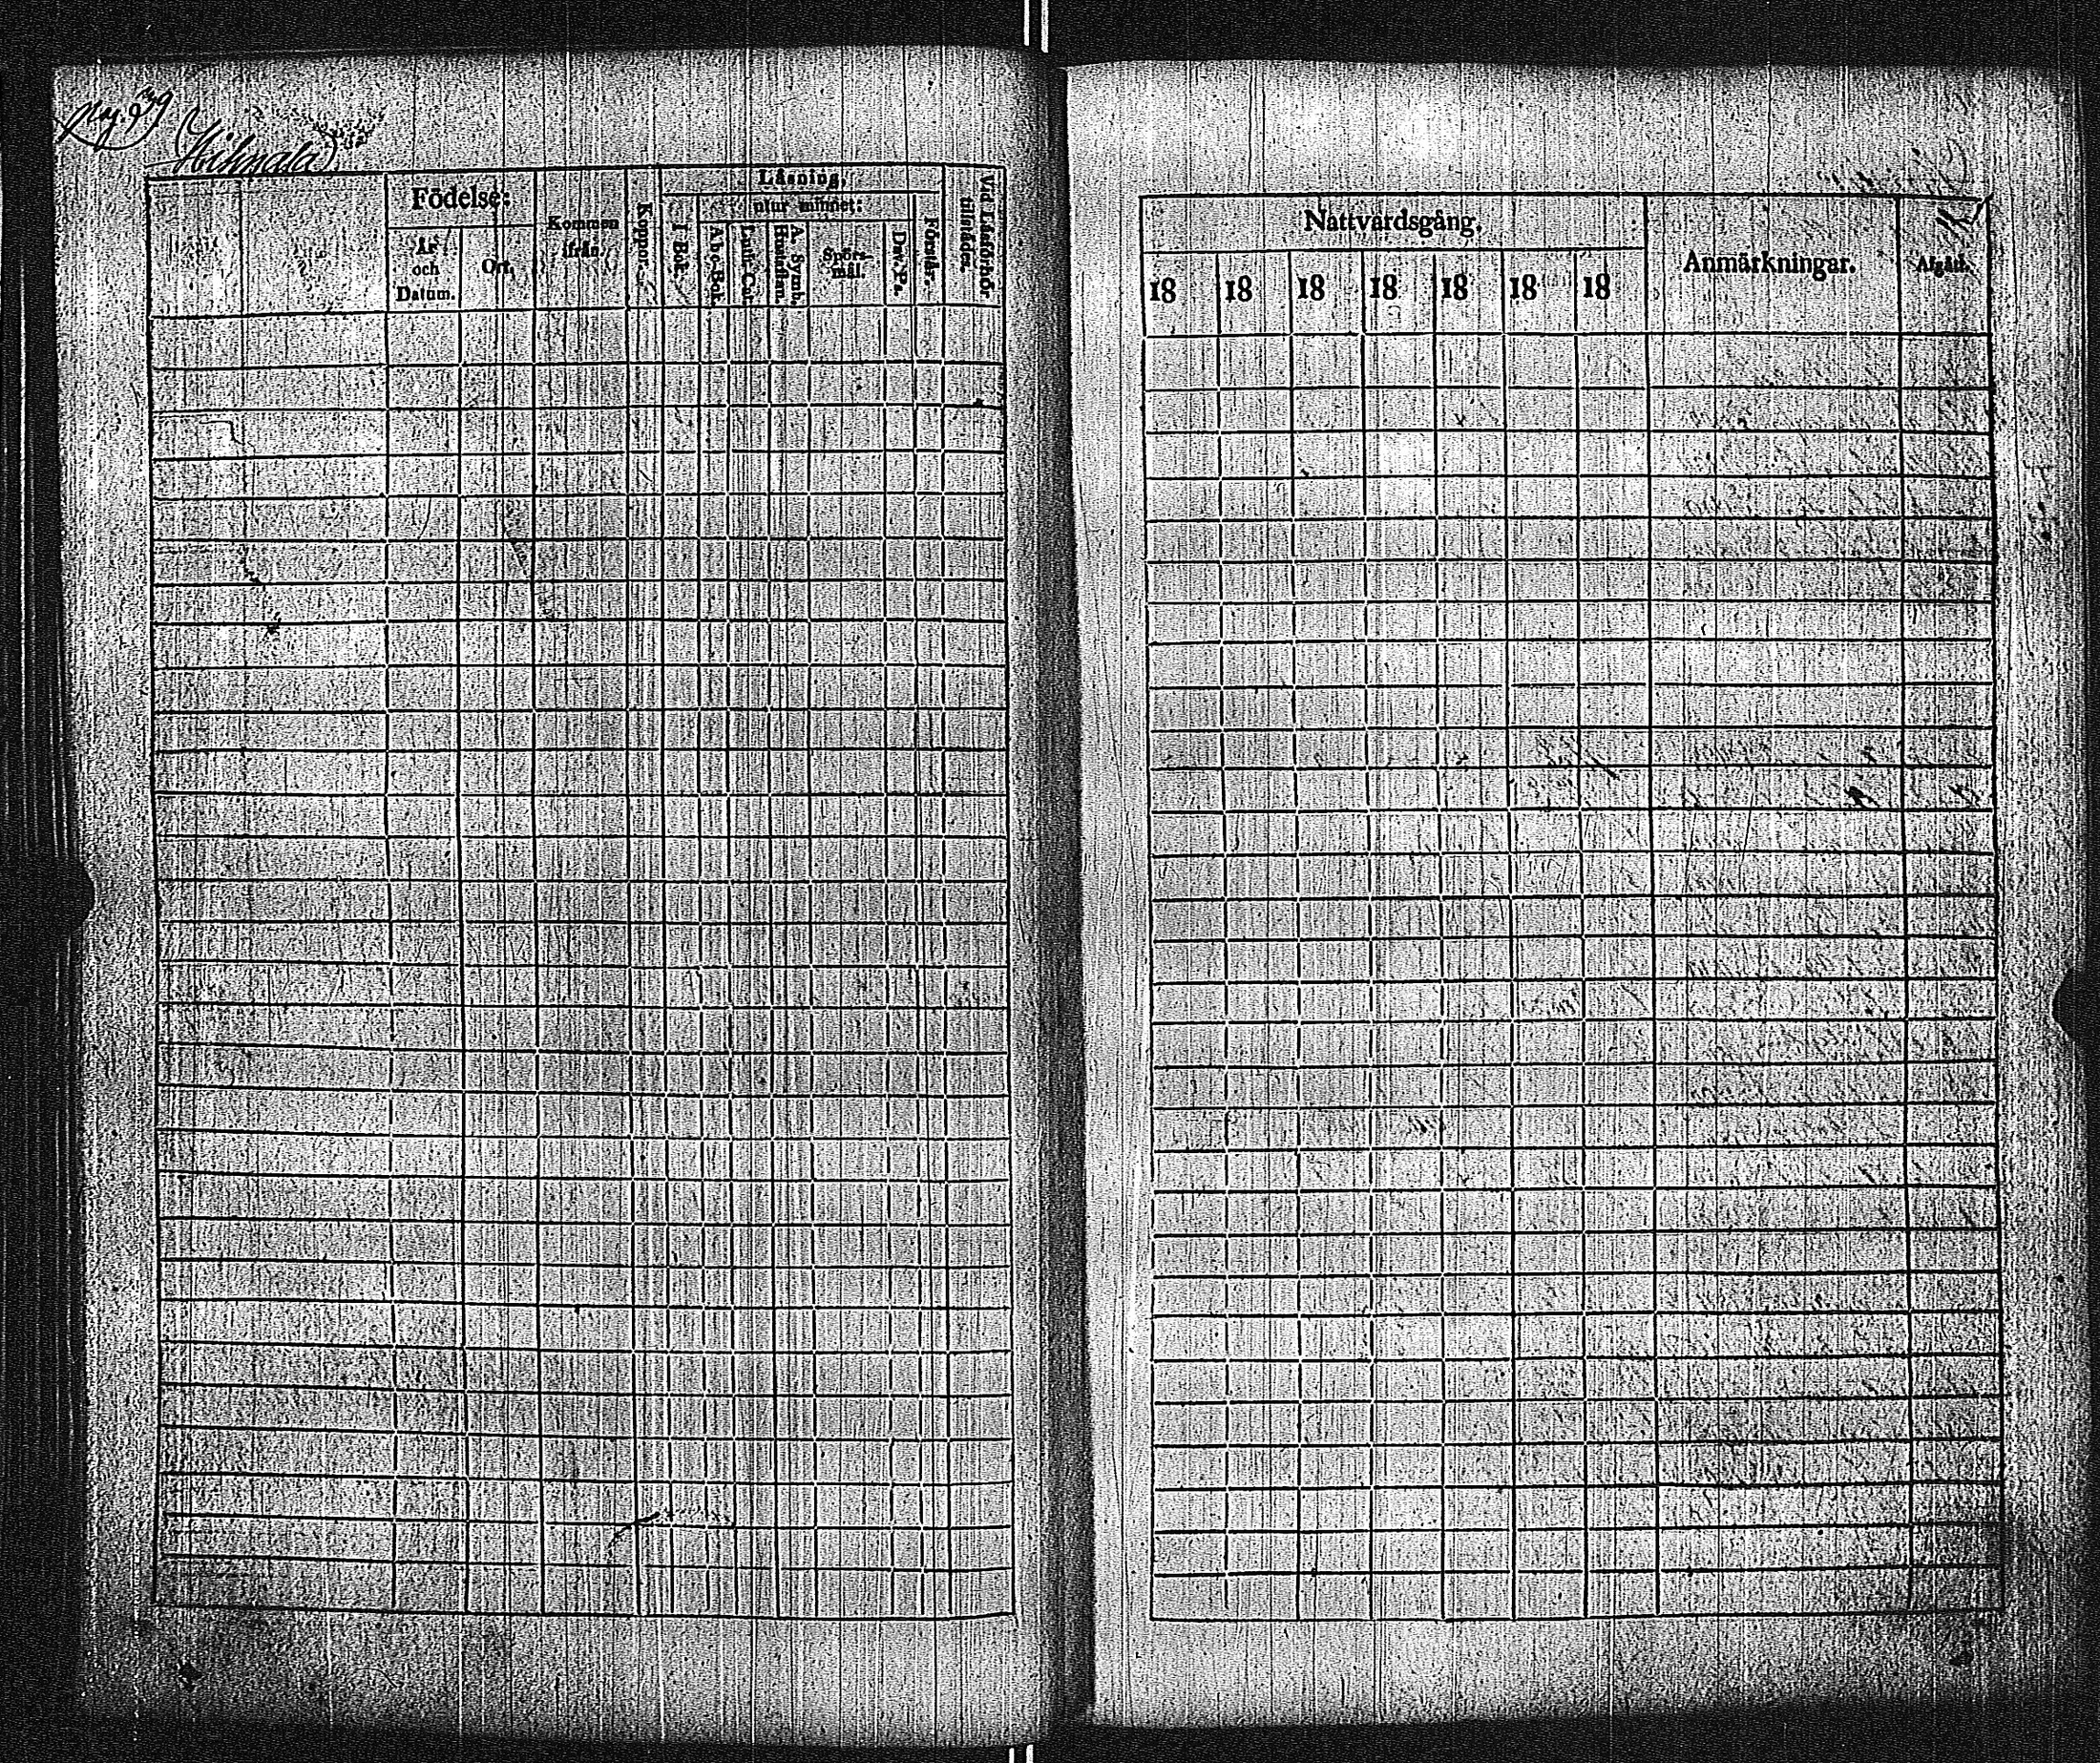 Hihnala
Födelse:
År och Datum.
Ort.
Kommen ifrån.
Koppor.
Läsning,
utur minnet:
I Bok.
A b c-Bok.
Luth. Cat.
A. Symb.
Hustaflan.
Spörs-
mål.
Dav. Ps.
Förstår.
Vid Läsförhör
tillstädes.
Nattvardsgång.
18 18 18 18 18 18 18
Anmärkningar.
Afgått.